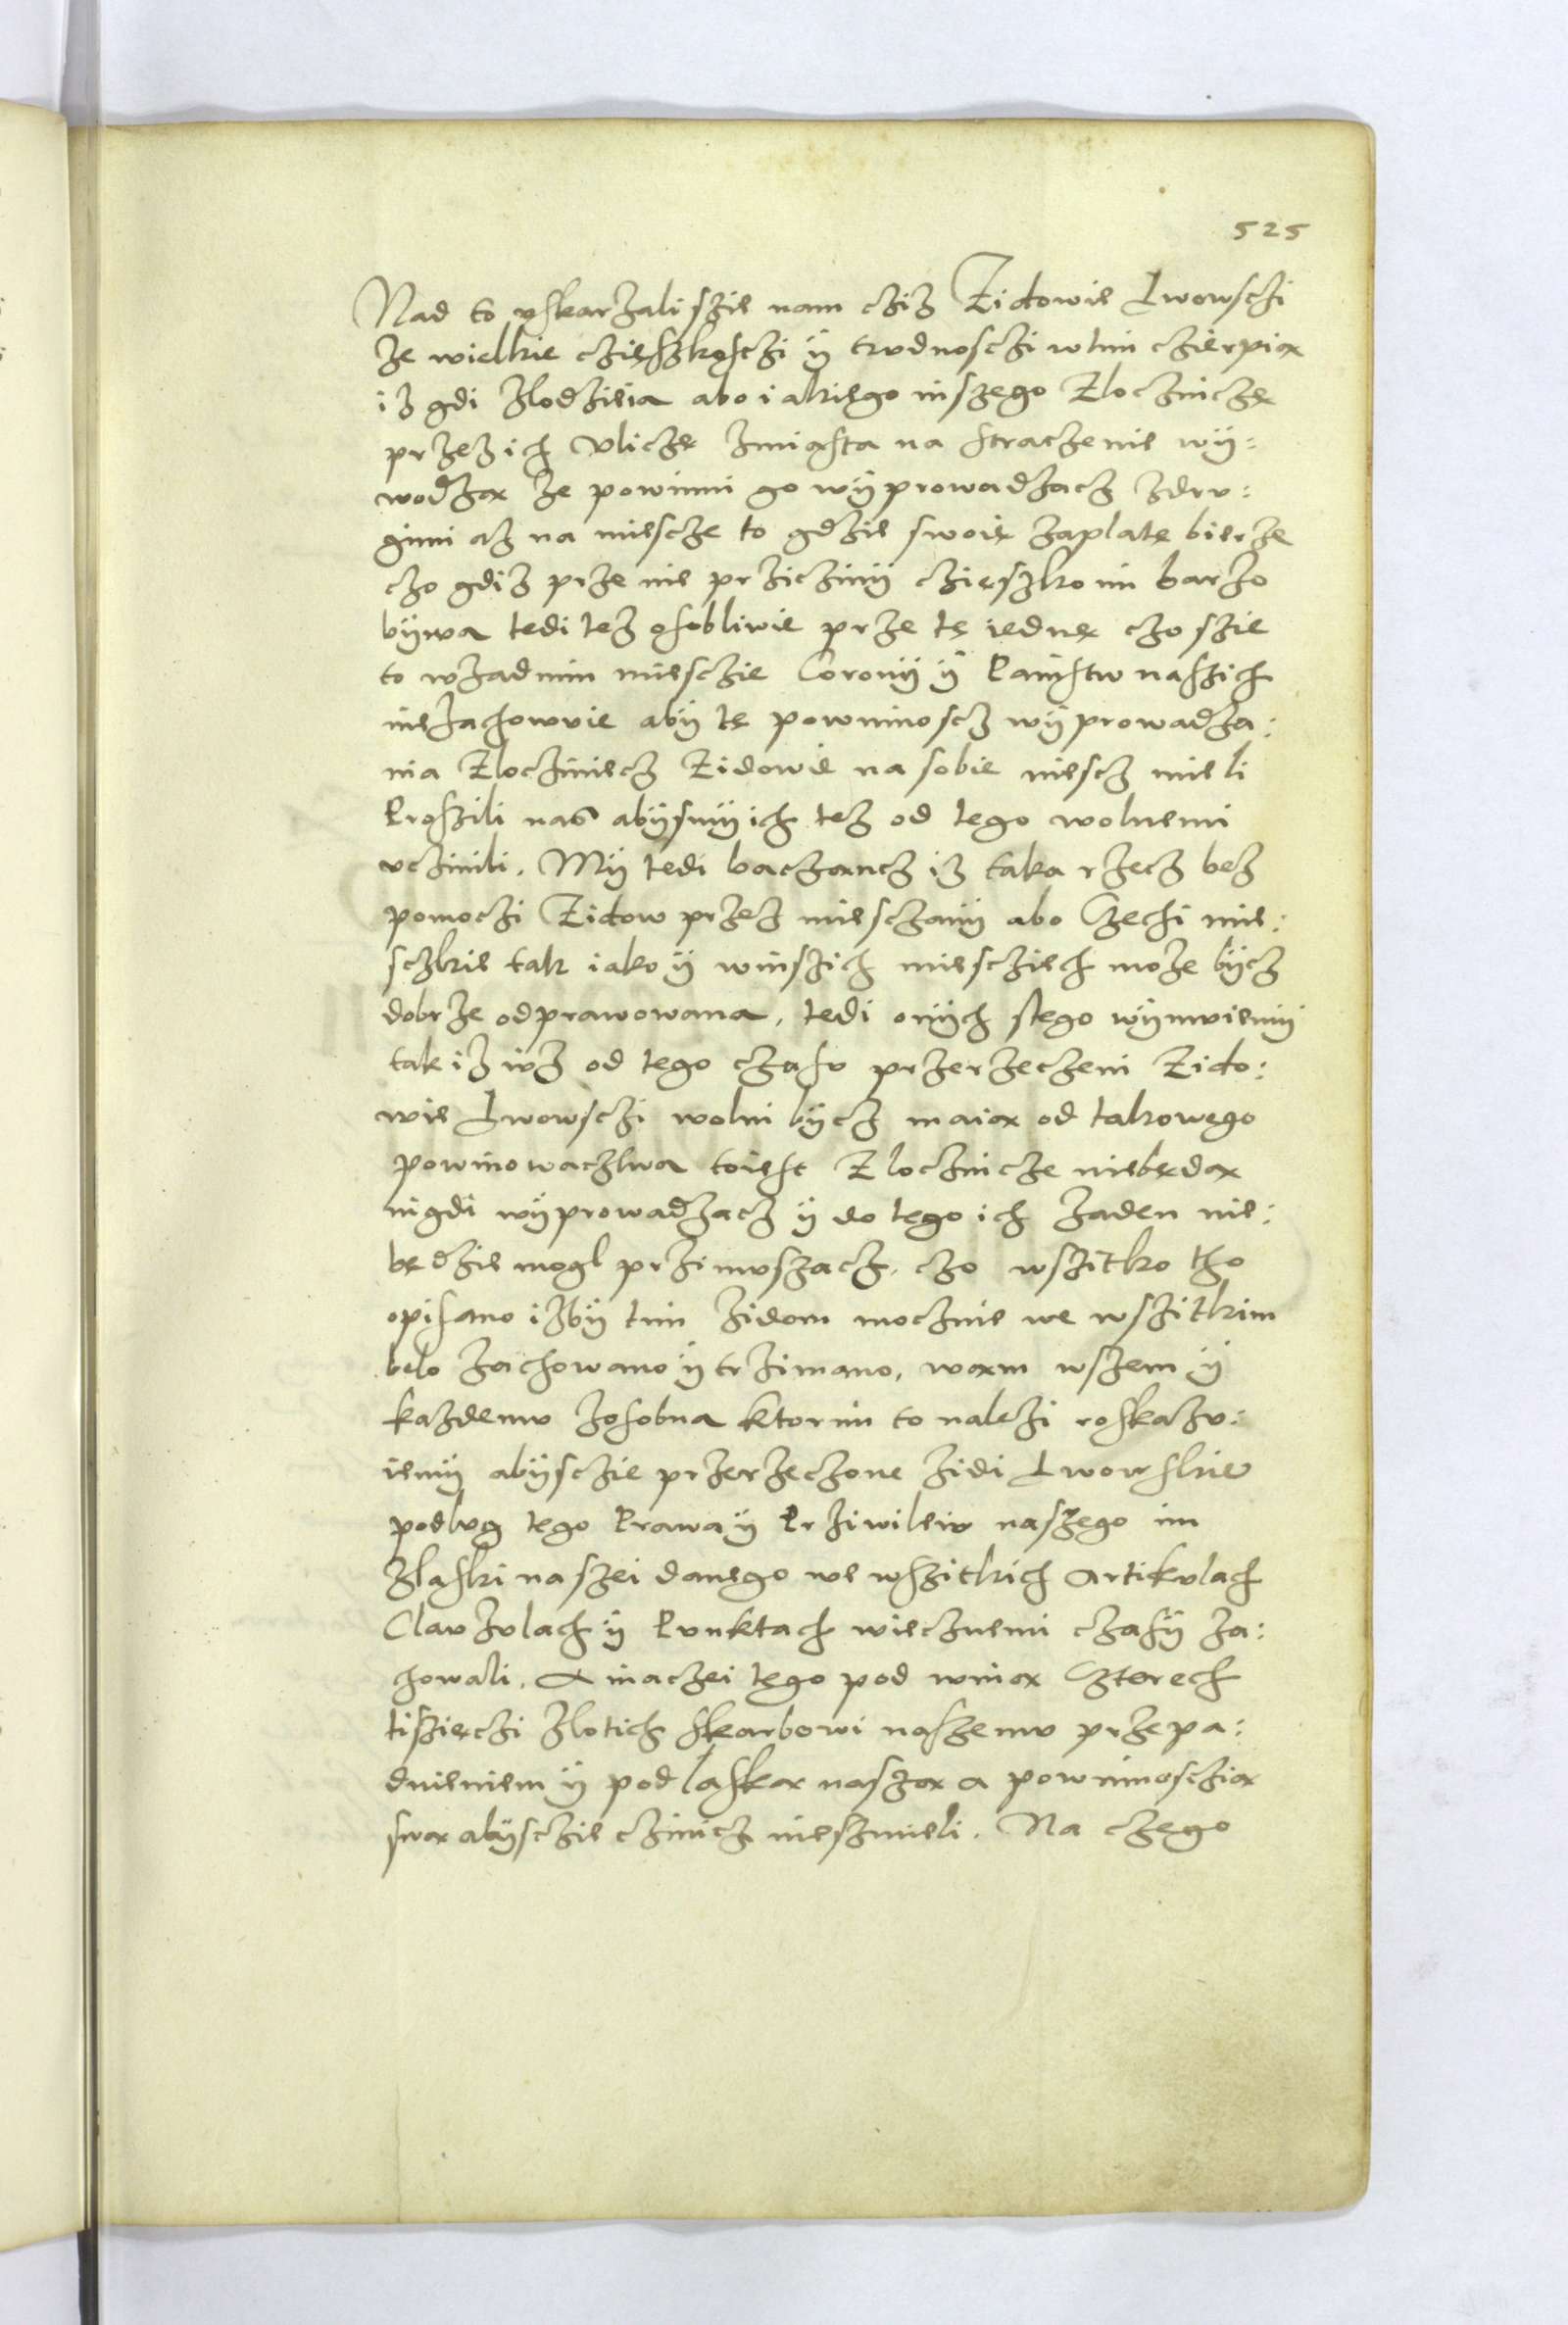 525
Nad to vskarzali szie nam cziz Zidowie Lwowsczi
ze wielkie czięszkosczi ÿ trudnosczi wtim czierpiąx
iz gdi zlodzieia abo iakiego inszego Zloczniczę
przez ich Vliczę zmiasta na straczenie wÿ:
wodząx ze powinni go wÿprowadzacz zdru:
gimi az na miescze to gdzie swoię zaplatę bierze
czo gdiz prze nie prziczinÿ czięszko im barzo
bÿwa tedi tez osobliwie prze tę iednę czo szie
to wzadnim miesczie Coronÿ ÿ Painstw naszich
niezachowuie abÿ tę powinnoscz wÿprowadza:
nia Zlocziniecz Zidowie na sobie niescz mieli
Proszili nas abÿsmÿ ich tez od tego wolnemi
vczinili. Mÿ tedi bacząncz iz taka rzecz bez
pomoczi Zidow przez miesczanÿ abo Czechi mie:
sczkie tak iako ÿ winszich miescziech moze bÿcz
dobrze odprawowana, tedi onÿch stego wÿmuiemÿ
tak iz iuz od tego czasu przerzeczeni Zido:
wie Lwowsczi wolni bÿcz maiąx od takowego
powinowacztwa toiest Zlocznicze niebędąx
nigdi wÿprowadzacz ÿ do tego ich zaden nie:
będzie mogl przimuszacz, czo wszitko tho
opisano izbÿ tim zidom mocznie we wszitkim
belo zachowano ÿ trzimano, wam wszem ÿ
kazdemu zosobna ktorim to nalezi roskazu:
iemÿ abÿsczie przerzeczone zidi Lwowskie
podlug tego Prawa ÿ Prziwileiu naszego im
zlaski naszei danego we wszitkich Artikulach
Clauzulach ÿ Punktach wiecznemi czasÿ za:
chowali. A inaczei tego pod winąx Czterech
tiszięczi zlotich skarbowi naszemu przepa:
dnieniem ÿ pod laskąx nasząx a powinnosciąx
swąx abÿsczie czinicz nieszmieli. Na czego